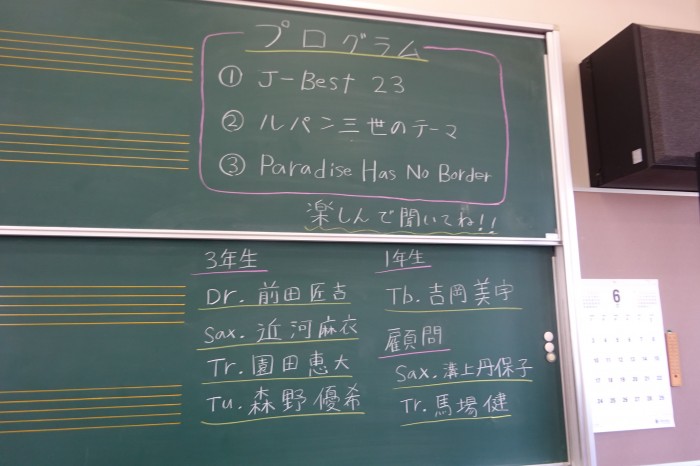 プログラム
① J-Best 23
② ルパン三世のテーマ
③ Paradise Has No Border
楽しんで聞いてね!!
3年生
Dr. 前田匠吉
Sax. 近河麻衣
Tr. 園田恵大
Tu. 森野優希
1年生
Tb. 吉岡美宇
顧問
Sax. 溝上丹保子
Tr. 馬場健
6